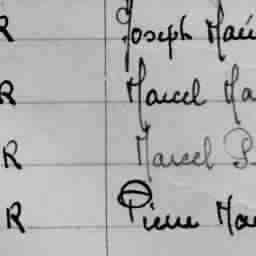 R Joseph Mau
R Marcel Ma
R Marcel P
R Pierre Mau